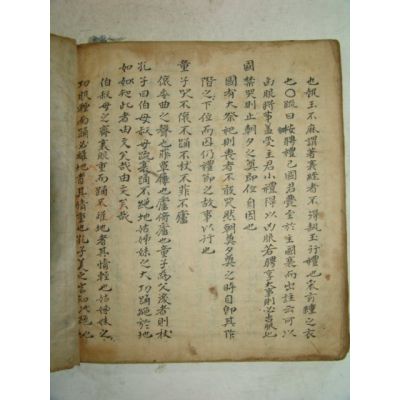 也執玉不麻謂著衰絰者不得執玉行禮也
也〇疏曰按聘禮己國君薨至於主國衰而出註云可以
凶服將事盖受主君小禮得以凶服若聘享大事則必吉服也
國禁哭則止朝夕之奠即位自因也
國有大祭祀則喪者不敢哭然朝奠夕奠之時自即其阼
階之下位而因仍禮節之故事以行也
童子哭不偯不踊不杖不菲不廬
偯委曲之聲也菲草屨也廬倚廬也童子為父後者則杖
孔子曰伯母叔母疏衰踊不絕地姑姊妹之大功踊絕於地
如知此者由文矣哉由文矣哉
伯叔母之齊衰服重而踊不離地者其情輕也姑姊妹之
功服輕而踊必離地者其情重也孔子美之言知此絕地